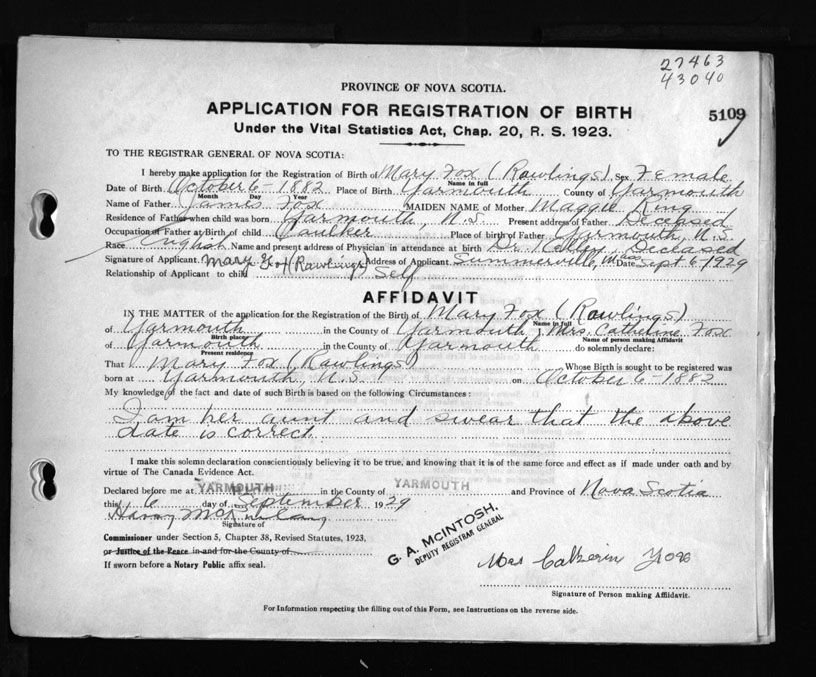 27463
43040
PROVINCE OF NOVA SCOTIA.
APPLICATION FOR REGISTRATION OF BIRTH
5109
Under the Vital Statistics Act, Chap. 20, R. S. 1923.
TO THE REGISTRAR GENERAL OF NOVA SCOTIA:
I hereby make application for the Registration of Birth of Mary Fox (Rawlings) Sex Female
Name in full
Date of Birth October 6 - 1882 Place of Birth Yarmouth County of Yarmouth
Month Day Year
Name of Father James Fox MAIDEN NAME of Mother Maggie King
Residence of Father when child was born Yarmouth, N.S Present address of Father Deceased
Occupation of Father at Birth of child Caulker Place of birth of Father Yarmouth, N.S.
Race English Name and present address of Physician in attendance at birth Dr. Kelley, Deceased
Signature of Applicant Mary Fox (Rawlings) Address of Applicant Summerville, Mass Date Sept 6-1929
Relationship of Applicant to child Self
AFFIDAVIT
IN THE MATTER of the application for the Registration of the Birth of Mary Fox (Rawlings)
Name in full
of Yarmouth in the County of Yarmouth I, Mrs. Catherine Fox
Birth place Name of person making Affidavit
of Yarmouth in the County of Yarmouth do solemnly declare:
Present residence
That Mary Fox (Rawlings) Whose Birth is sought to be registered was
born at Yarmouth, N.S. on October 6 - 1882
My knowledge of the fact and date of such Birth is based on the following Circumstances:
I am her aunt and swear that the above
date is correct.
I make this solemn declaration conscientiously believing it to be true, and knowing that it is of the same force and effect as if made under oath and by
virtue of The Canada Evidence Act.
Declared before me at YARMOUTH in the County of YARMOUTH and Province of Nova Scotia
this 6 day of September 1929
Harry
Signature of
Commissioner under Section 5, Chapter 38, Revised Statutes, 1923,
or Justice of the Peace in and for the County of
If sworn before a Notary Public affix seal.
G. A. McINTOSH,
DEPUTY REGISTRAR GENERAL
Mrs Catherin Fox
Signature of Person making Affidavit.
For Information respecting the filling out of this Form, see Instructions on the reverse side.